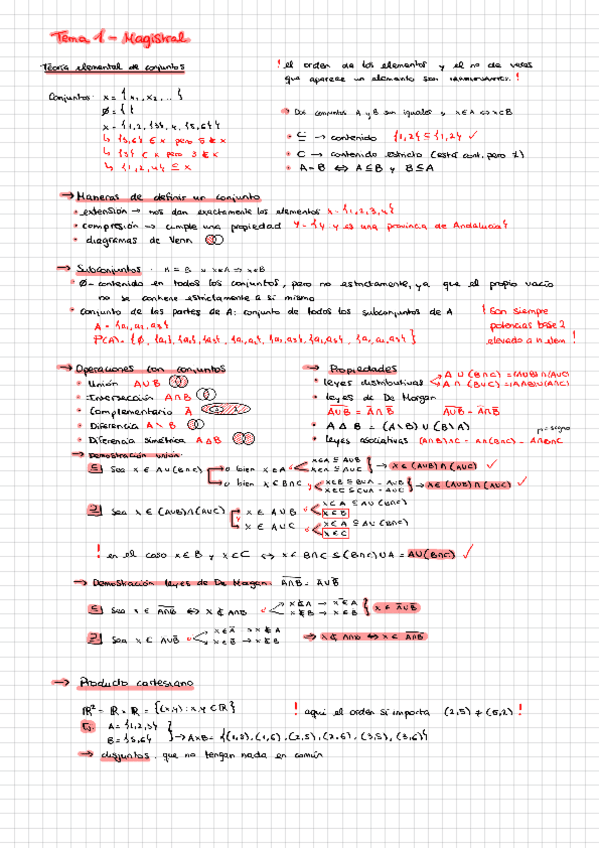 Tema 1 - Magistral
Teoría elemental de conjuntos
! el orden de los elementos y el no de veces
que aparece un elemento son irrelevantes. !
Conjuntos: X = {x₁, x₂, ... }
Ø = { }
X = {1,2,{3}, 4, {5,6}}
↳ {5,6} ∈ X pero 5 ∉ X
↳ {3} ∈ X pero 3 ∉ X
↳ {1,2,4} ⊆ X
→ Dos conjuntos A y B son iguales si x∈A ⇔ x∈B
• ⊆ → contenido {1,2} ⊆ {1,2} ✓
• ⊂ → contenido estricto (está cont. pero ≠)
• A = B ⇔ A ⊆ B y B ⊆ A
→ Maneras de definir un conjunto
• extensión → nos dan exactamente los elementos X = {1,2,3,4}
• compresión → cumple una propiedad Y = {y : y es una provincia de Andalucía}
• diagramas de Venn
→ Subconjuntos
• Ø - contenido en todos los conjuntos, pero no estrictamente, ya que el propio vacío
no se contiene estrictamente a si mismo
• conjunto de las partes de A: conjunto de todos los subconjuntos de A
A = {a₁, a₂, a₃}
P(A) = {Ø, {a₁}, {a₂}, {a₃}, {a₁,a₂}, {a₁,a₃}, {a₂,a₃}, {a₁,a₂,a₃}}
! Son siempre
potencias base 2
elevado a n elem !
→ Operaciones con conjuntos
• Unión A ∪ B
• Intersección A ∩ B
• Complementario A̅
• Diferencia A \ B
• Diferencia simétrica A Δ B
→ Propiedades
• leyes distributivas A ∪ (B∩C) = (A∪B)∩(A∪C)
A ∩ (B∪C) = (A∩B)∪(A∩C)
• leyes de De Morgan
• A Δ B = (A\B) ∪ (B\A)
• leyes asociativas (A∩B)∩C = A∩(B∩C) = A∩B∩C
→ Demostración unión:
⊆ Sea x ∈ A∪(B∩C)
o bien x ∈ A
o bien x ∈ B∩C
→ x ∈ (A∪B) ∩ (A∪C) ✓
→ x ∈ (A∪B) ∩ (A∪C) ✓
⊇ Sea x ∈ (A∪B)∩(A∪C)
x ∈ A∪B
x ∈ A ⊆ A∪(B∩C)
x ∈ B
y
x ∈ A∪C
x ∈ A ⊆ A∪(B∩C)
x ∈ C
! en el caso x∈B y x∈C ⇔ x ∈ B∩C ⊆ (B∩C)∪A = A∪(B∩C) ✓
→ Demostración leyes de De Morgan:
→ Producto cartesiano
ℝ² = ℝ × ℝ = {(x,y) : x,y ∈ ℝ}
! aquí el orden si importa (2,5) ≠ (5,2) !
Ej: A = {1,2,3}
B = {5,6}
→ A×B = {(1,5), (1,6), (2,5), (2,6), (3,5), (3,6)}
→ disjuntos: que no tengan nada en común